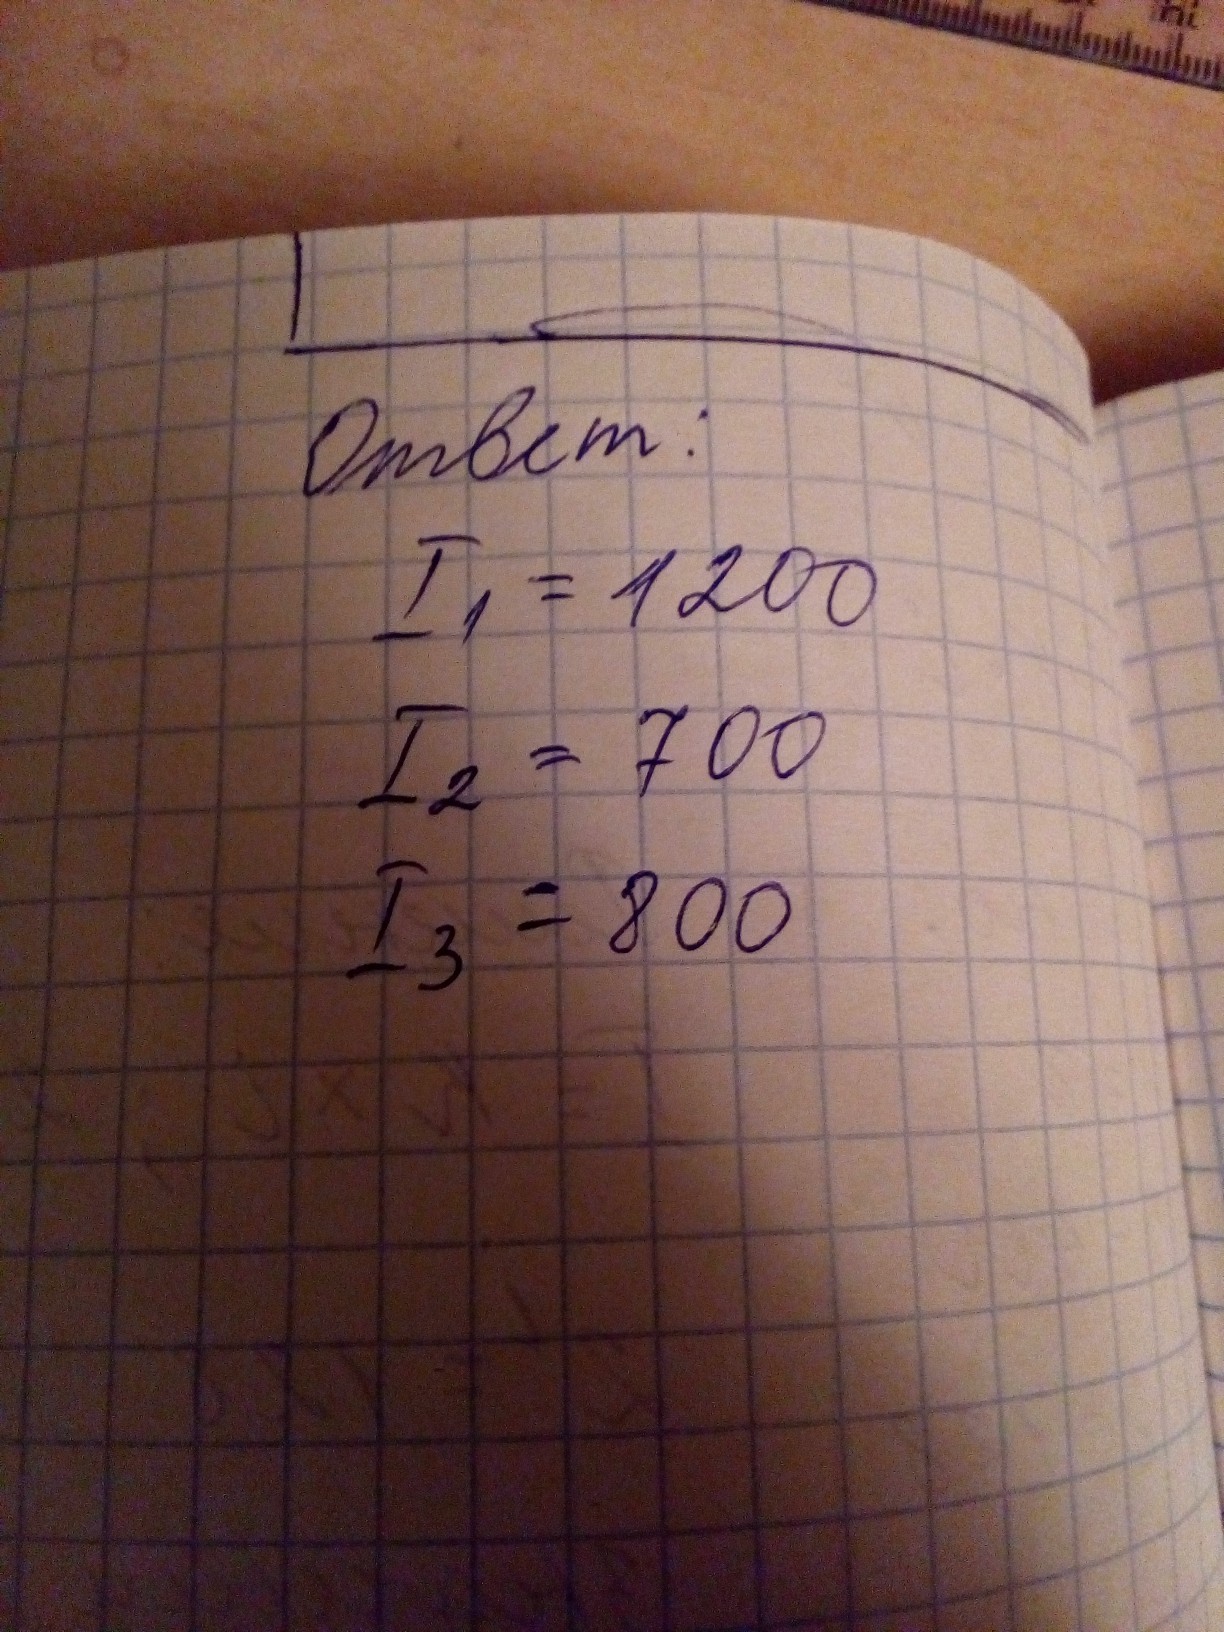 Ответ:
I₁ = 1200
I₂ = 700
I₃ = 800